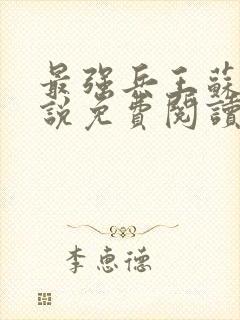 最强兵王蘇
說免費閱讀
李惠德